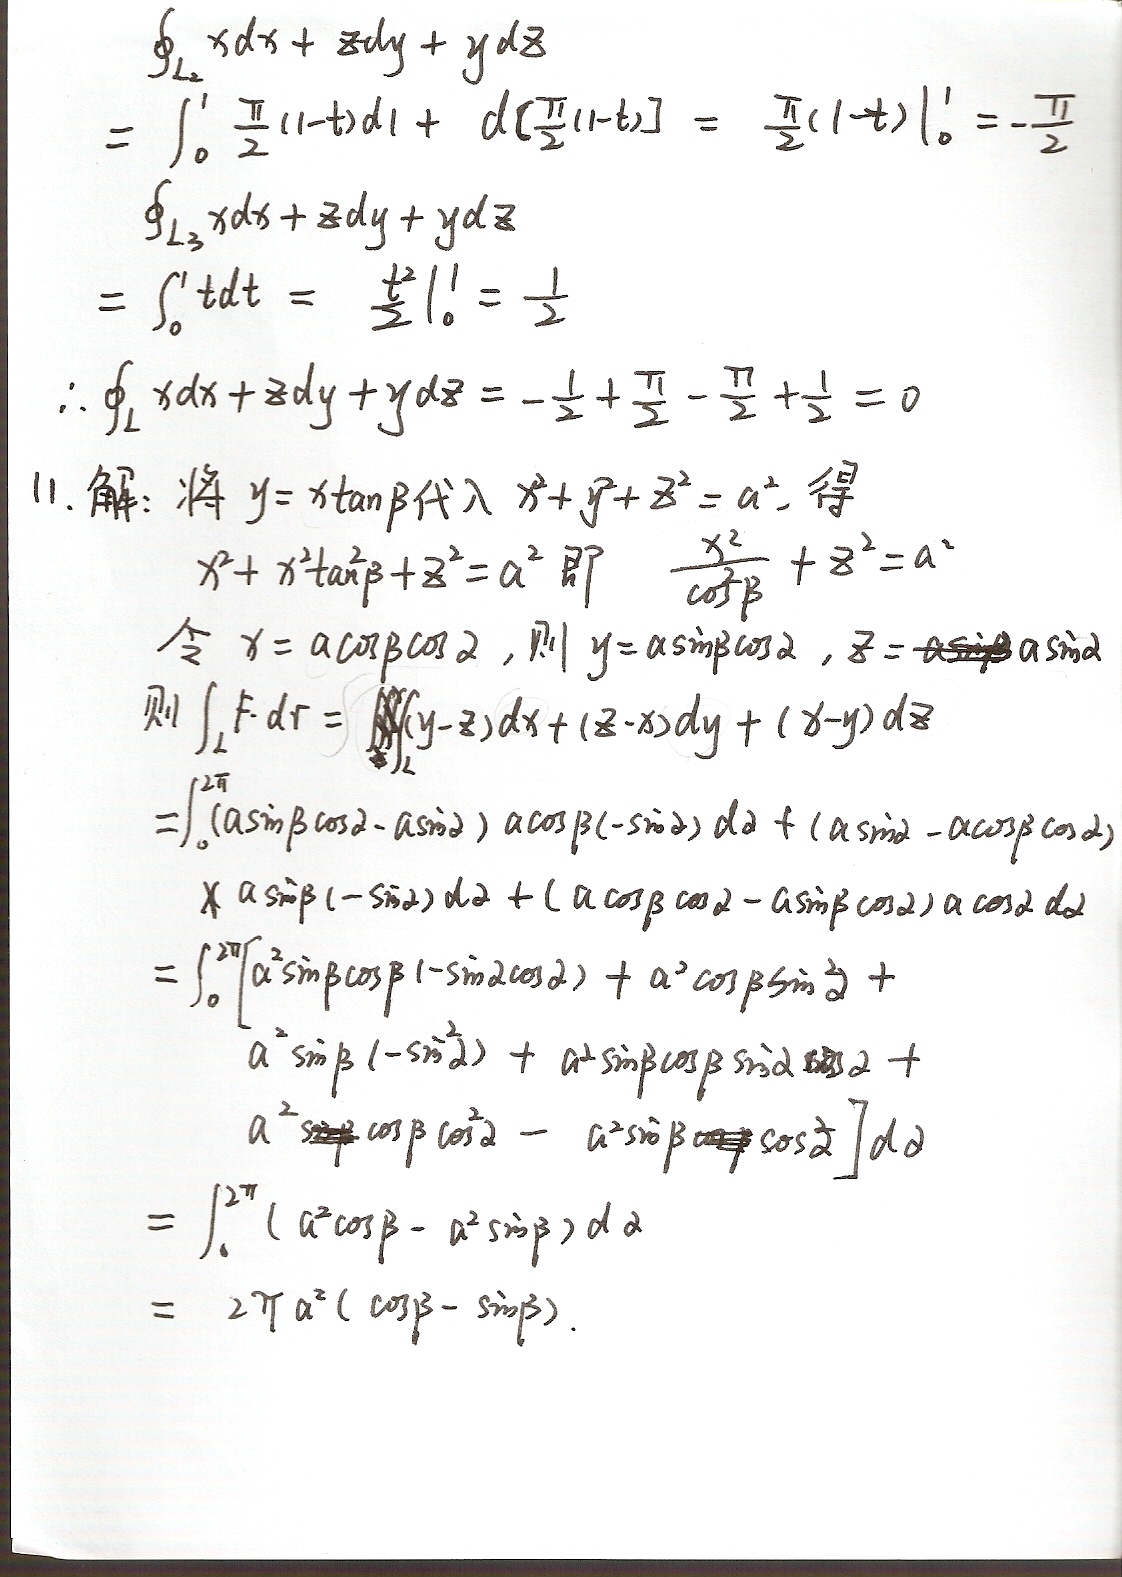 ∮_{L₂} xdx + zdy + ydz
= ∫₀¹ π/2 (1-t)d1 + d[π/2(1-t)] = π/2(1-t)|₀¹ = -π/2
∮_{L₃} xdx + zdy + ydz
= ∫₀¹ tdt = t²/2|₀¹ = 1/2
∴ ∮_L xdx + zdy + ydz = -1/2 + π/2 - π/2 + 1/2 = 0
11. 解: 将 y = xtanβ代入 x²+y²+z² = a², 得
x² + x²tan²β + z² = a² 即 x²/cos²β + z² = a²
令 x = acosβcosα, 则 y = asinβcosα, z = asinα
则 ∫_L F·dr = ∫_L (y-z)dx + (z-x)dy + (x-y)dz
= ∫₀^{2π} (asinβcosα - asinα) acosβ(-sinα)dα + (asinα - acosβcosα)
× asinβ(-sinα)dα + (acosβcosα - asinβcosα)acosα dα
= ∫₀^{2π} [a²sinβcosβ(-sinαcosα) + a²cosβsin²α +
a²sinβ(-sin²α) + a²sinβcosβsinαcosα +
a²cosβcos²α - a²sinβcos²α]dα
= ∫₀^{2π} (a²cosβ - a²sinβ)dα
= 2πa²(cosβ - sinβ).